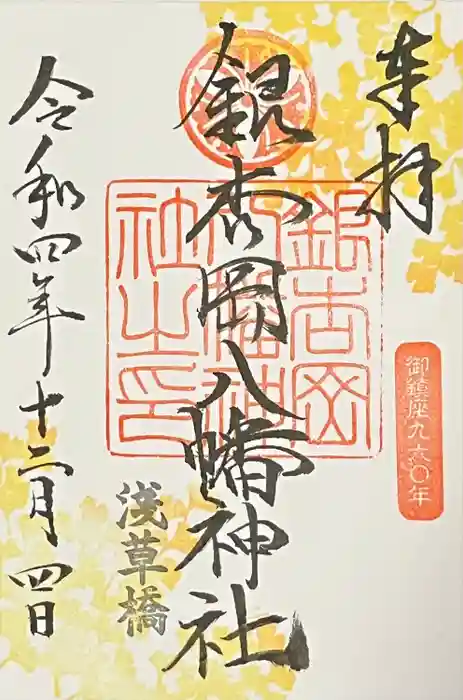 奉拝
御鎮座九六〇年
銀杏岡八幡神社
浅草橋
令和四年十二月四日